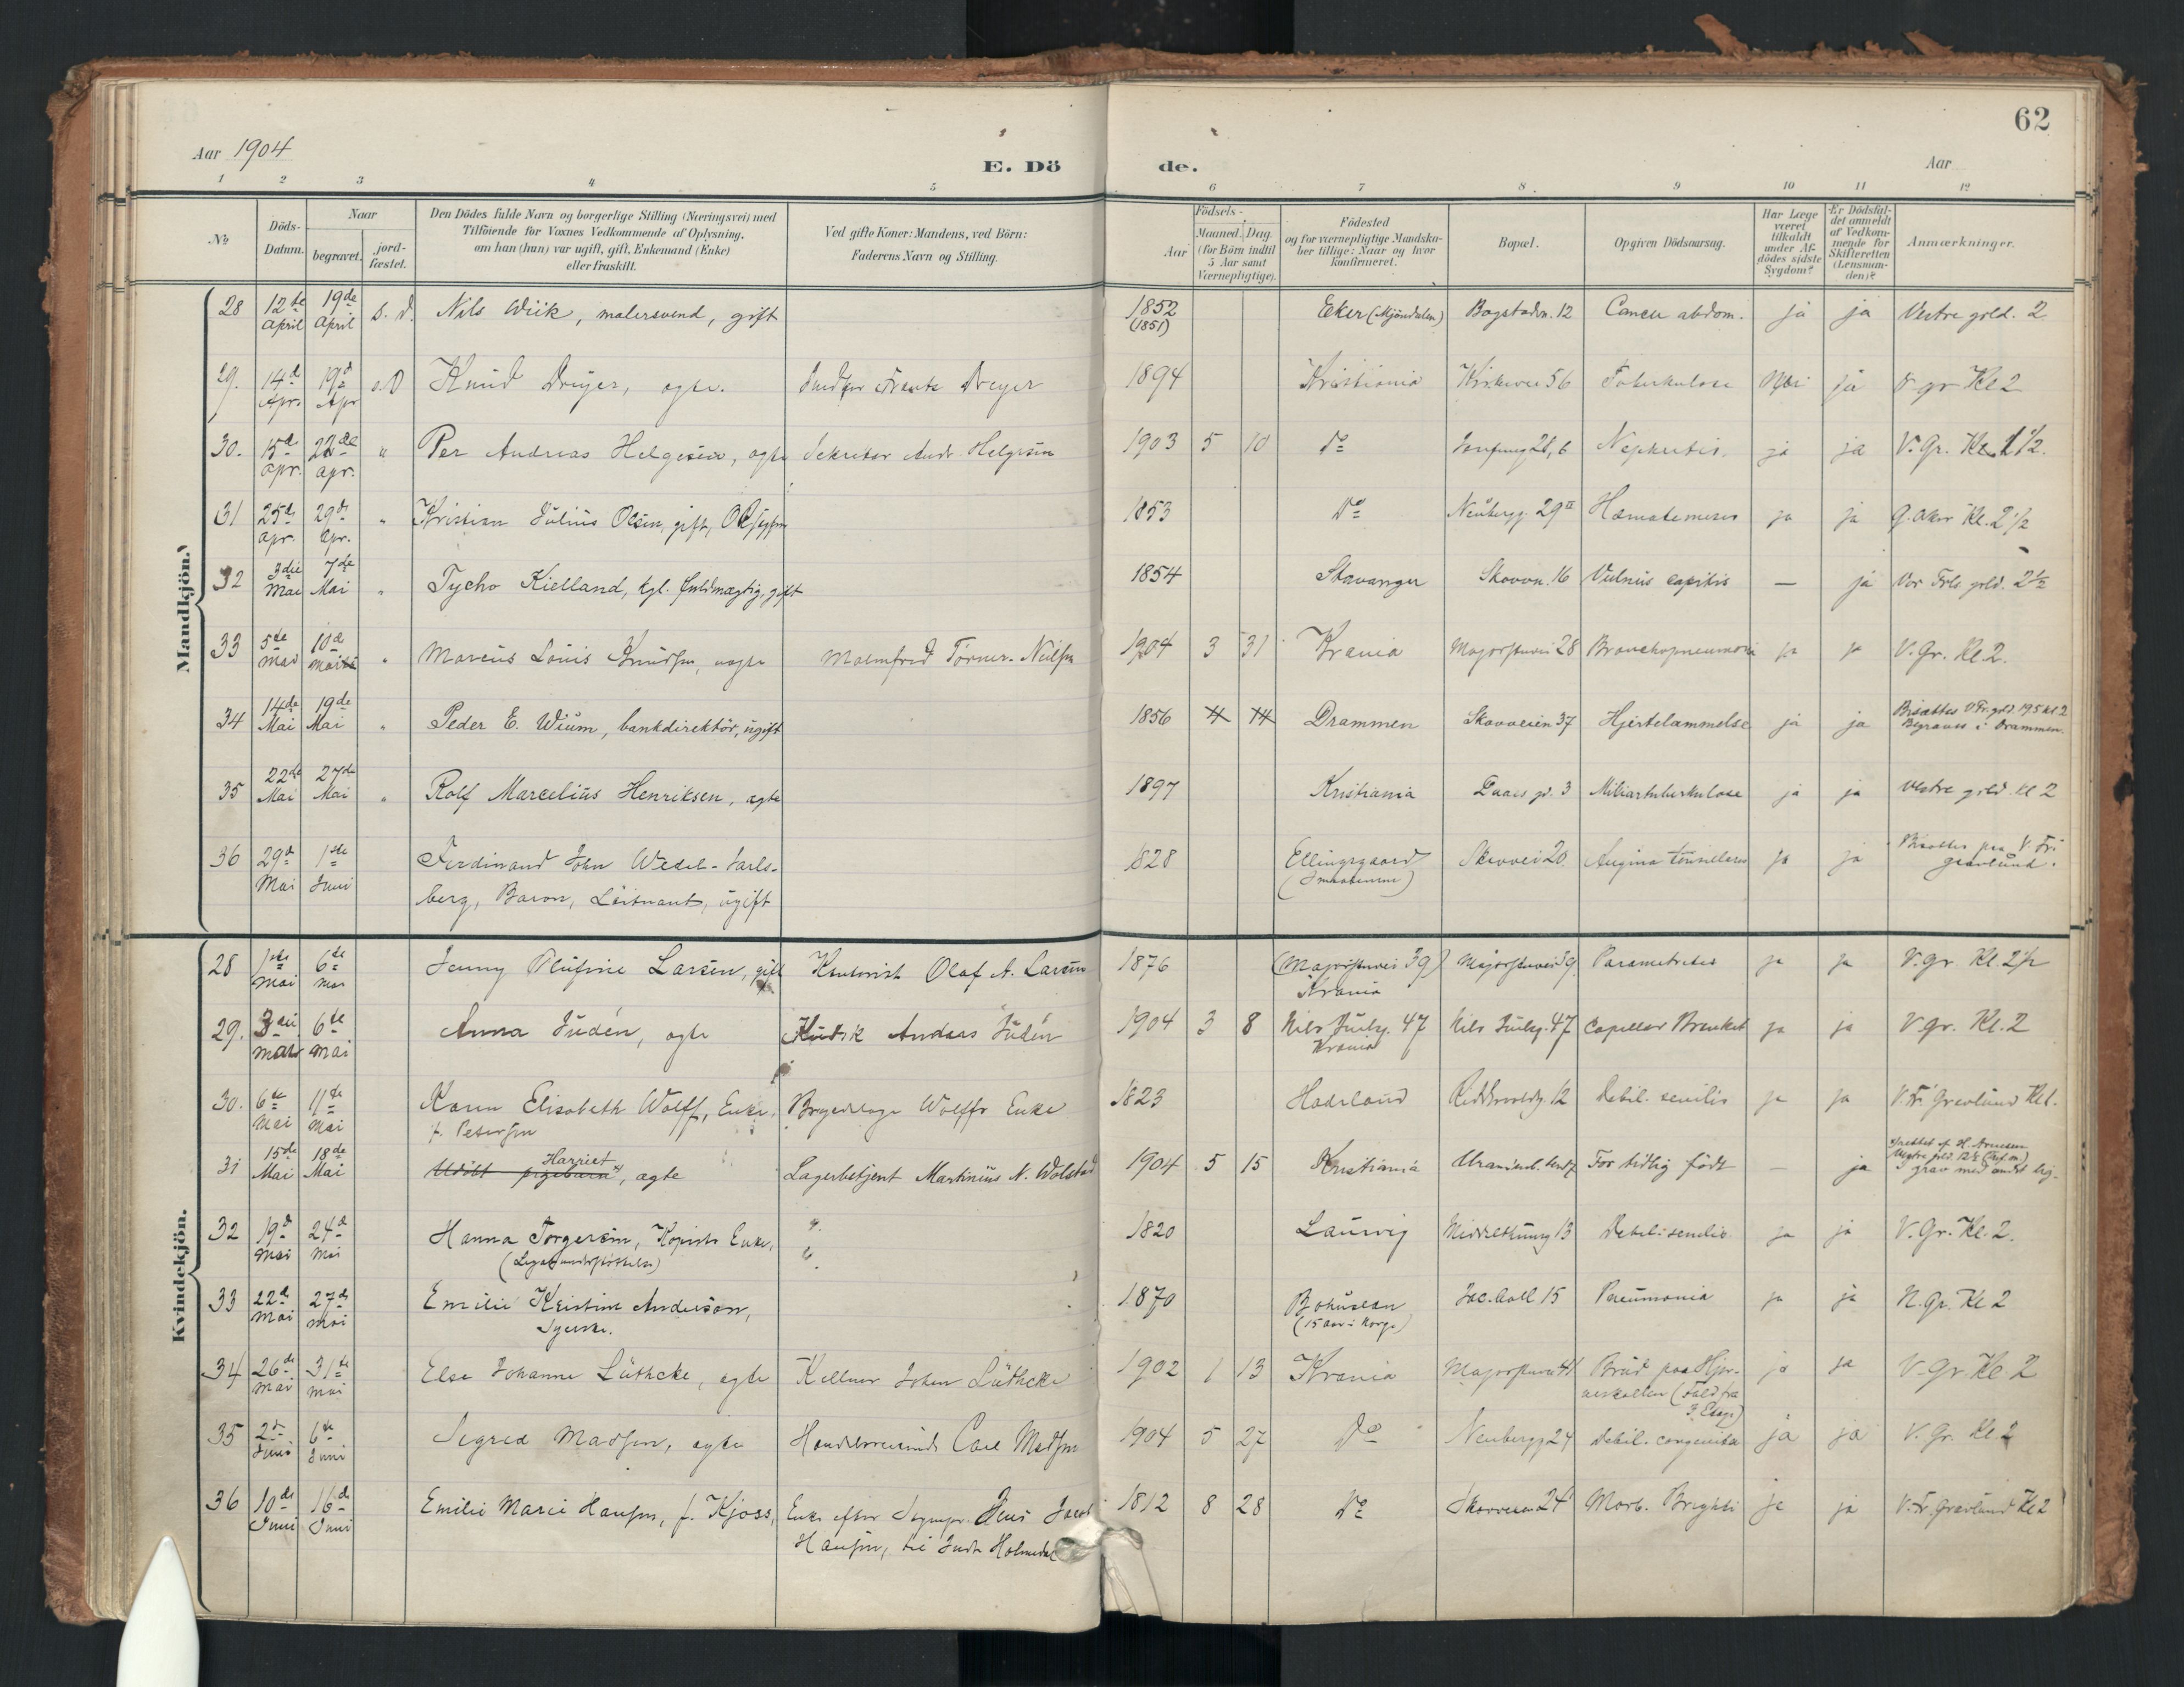 62
Aar 1904
E. Dö de.
Aar
1 2 3 4 5 6 7 8. 9 10 11 12
No
Döds-Datum.
Naar
begravet.
jord-fæstet.
Den Dödes fulde Navn og borgerlige Stilling (Næringsvei) med
Tilföiende for Voxnes Vedkommende af Oplysning.
om han (hun) var ugift, gift, Enkemand (Enke)
eller fraskilt.
Ved gifte Koner: Mandens, ved Börn:
Faderens Navn og Stilling.
Födsels-
Aar
Maaned. Dag.
(for Börn indtil
5 Aar samt
Værnepligtige).
Födested
og for værnepligtige Mandska-
ber tillige: Naar og hvor
konfirmeret.
Bopæl.
Opgiven Dödsaarsag.
Har Læge
været
tilkaldt
under Af-
dödes sidste
Sygdom?
Er Dödsfal-
det anmeldt
af Vedkom-
mende for
Skifteretten
(Lensman-
den)?
Anmærkninger.
Mandkjön.
28 12te April 19de April s. d. Nils Wiik, malersvend, gift 1852 (1851) Eker (Mjöndalen) Bogstadvn. 12 Cancer abdom. ja ja Vestre grld. 2
29. 14d Apr. 19d Apr s. D Knud Dreyer, ægte. Dreyer 1894 Kristiania Kirkevei 56 Tuberkulose Nei ja V gr Kl 2
30. 15d apr. 22de apr. " Per Andreas Helgesen, ægte Sekretær Andr. Helgesen 1903 5 10 do Nephritis. ja ja V. Gr. Kl. 1 1/2.
31 25d apr. 29d apr. " Kristian Julius Olsen, gift, 1853 do Neubergg. 29 II Hæmatemeses ja ja Kl. 2 1/2
32 3die Mai 7de Mai " Tycho Kielland, kgl. fuldmægtig, gift 1854 Stavanger Skovvn. 16 Vulnus capitis — ja Vor Frls. grld. 2 1/2
33 5te Mai 10de Mai " Marcus Louis Knudsen, uægte Malmfred Törner. Nilsen 1904 3 31 Krania Majorstuvei 28 Bronchopneumoni ja ja V. Gr. Kl. 2.
34 14de Mai 19de Mai " Peder E. Wium, bankdirektör, ugift 1856 4 14 Drammen Skovveien 37 Hjertelammelse ja ja Bisættes V Fr. grld. 19 5 kl 2
Begraves i Drammen.
35 22de Mai 27de Mai " Rolf Marcelius Henriksen, ægte 1897 Kristiania 3 Miliærtuberkulose ja ja Vestre grld. kl 2
36 29d Mai 1ste Juni Ferdinand John Wedel-Jarls-
berg, Baron, Löitnant, ugift 1828 Ellingsgaard
(Smaalenene) Skovvei 20. Angina tonsillaris ja ja Bisættes paa V. Fr.
gravlund.
Kvindekjön.
28 1ste Mai 6te Mai Jenny Olufine Larsen, gift Kontorist Olaf A. Larsen 1876 (Majorstuvei 39) Krania Majorstuvei 39 Parametrites ja ja V. gr. Kl. 2 1/2
29. 3die Mai 6te Mai Anna Judén, ægte Kudsk Andreas Judén 1904 3 8 Nils Juelsg. 47 Krania Nils Juelsg. 47 Capillær Bronkit ja ja V gr. Kl. 2
30. 6te Mai 11te Mai Karen Elisabeth Wolff, Enke,
f. Petersen Wolffs Enke 1823 Hadeland 12 Debil. senilis ja ja V. Fr. Gravlund Kl 1.
31 15de Mai 18de Mai Harriet
Udöbt pigebarn, ægte Lagerbetjent Martinius N. Wolstad 1904 5 15 Kristiania For tidlig födt — ja
i grav med andet lig.
32 19d Mai 24d Mai Hanna Torgersen, Kopists Enke,
(Legatunderstöttelse) " " 1820 Laurvig Middelthunsg 13 Debil: senilis ja ja V. Gr. Kl. 2.
33 22d Mai 27de Mai Emilie Kristine Anderson,
Syerske. 1870 Bohuslen
(15 Aar i Norge) Jac. Aall 15 Pneumonia ja ja N. Gr. Kl 2
34 26de Mai 31te Mai Else Johanne Lüthcke, ægte Kellner Johan Lüthcke 1902 1 13 Krania Majorstuvei 41 Brud paa Hjer-
neskallen (Fald fra
3. Etage) ja ja V. Gr. Kl. 2
35 2d Juni 6te Juni Sigrid Madsen, ægte Handelsreisende Carl Madsen 1904 5 27 Do Neubergg 24 Debil. congenita ja ja V. Gr. Kl 2
36 10de Juni 16de Juni Emilie Marie Hansen, f. Kjoss, Enke efter Sognepr. Jens
Hansen, til Indr Holmedal 1812 8 28 do Skovveien 24 Morb. Brightii ja ja V. Fr. Gravlund Kl 2